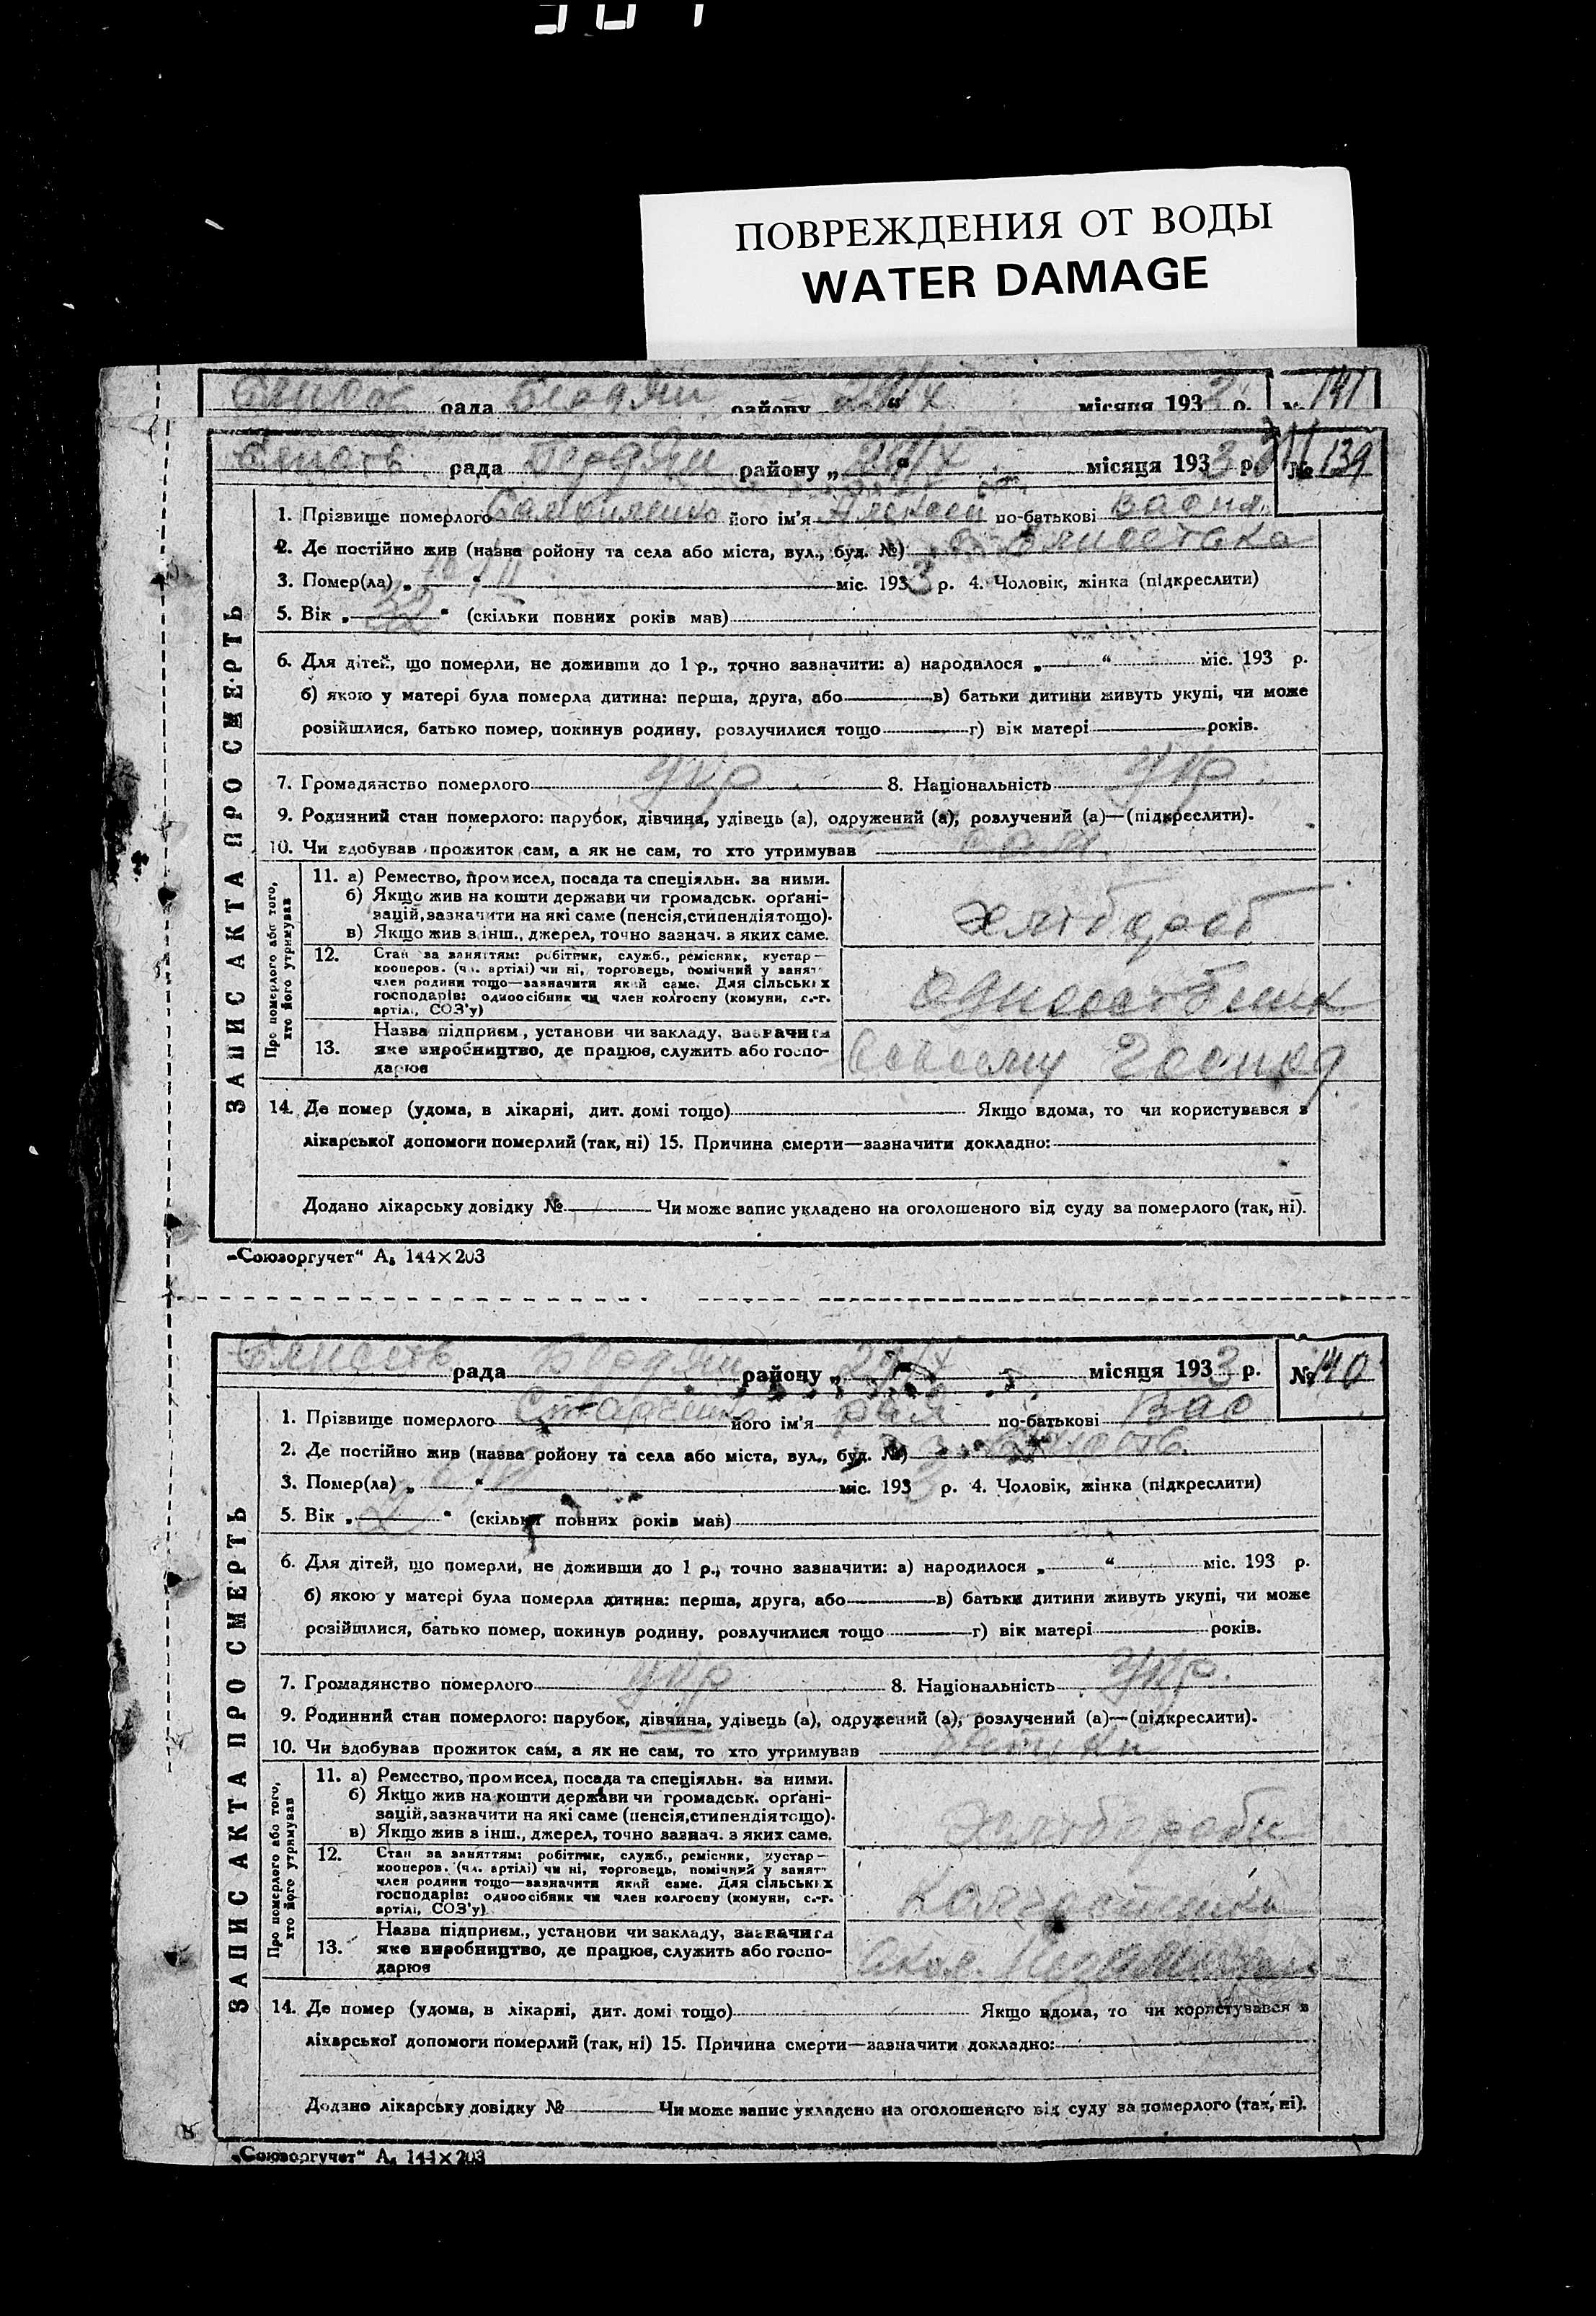 ПОВРЕЖДЕНИЯ ОТ ВОДЫ
WATER DAMAGE
рада району „ “ місяця 1933 р. № 141
рада району „ “ місяця 1933 р. № 139
ЗАПИС АКТА ПРО СМЕРТЬ
1. Прізвище померлого його ім'я Алексей по-батькові
2. Де постійно жив (назва ройону та села або міста, вул., буд. №)
3. Помер(ла) „ “ міс. 1933 р. 4. Чоловік, жінка (підкреслити)
5. Вік „ “ (скільки повних років мав)
6. Для дітей, що померли, не доживши до 1 р., точно зазначити: а) народилося „ “ міс. 193 р.
б) якою у матері була померла дитина: перша, друга, або в) батьки дитини живуть укупі, чи може
розійшлися, батько помер, покинув родину, розлучилися тощо г) вік матері років.
7. Громадянство померлого укр. 8. Національність укр.
9. Родинний стан померлого: парубок, дівчина, удівець (а), одружений (а), розлучений (а)—(підкреслити).
10. Чи здобував прожиток сам, а як не сам, то хто утримував сам
Про померлого або того, хто його утримував
11. а) Ремество, промисел, посада та спеціяльн. за ними.
б) Якщо жив на кошти держави чи громадськ. оргáні-
зацій, зазначити на які саме (пенсія, стипендія тощо).
в) Якщо жив з інш., джерел, точно зазнач. з яких саме.
хлібороб
12. Стан за заняттям: робітник, служб., ремісник, кустар—
кооперов. (чл. артілі) чи ні, торговець, помічний у занят-
член родини тощо—зазначити який саме. Для сільських
господарів: одноосібник чи член колгоспу (комуни, с.-г.
артілі, СОЗ'у)
13. Назва підприєм., установи чи закладу, зазначити
яке виробництво, де працює, служить або госпо-
дарює
14. Де помер (удома, в лікарні, дит. домі тощо) Якщо вдома, то чи користувався з
лікарської допомоги померлий (так, ні) 15. Причина смерти—зазначити докладно:
Додано лікарську довідку № Чи може запис укладено на оголошеного від суду за померлого (так, ні).
„Союзоргучет“ А₅ 144×203
рада району „ “ місяця 1933 р. № 140
ЗАПИС АКТА ПРО СМЕРТЬ
1. Прізвище померлого його ім'я по-батькові Вас
2. Де постійно жив (назва ройону та села або міста, вул., буд. №)
3. Помер(ла) „ “ міс. 1933 р. 4. Чоловік, жінка (підкреслити)
5. Вік „ 2 “ (скільки повних років мав)
6. Для дітей, що померли, не доживши до 1 р., точно зазначити: а) народилося „ “ міс. 193 р.
б) якою у матері була померла дитина: перша, друга, або в) батьки дитини живуть укупі, чи може
розійшлися, батько помер, покинув родину, розлучилися тощо г) вік матері років.
7. Громадянство померлого укр 8. Національність укр.
9. Родинний стан померлого: парубок, дівчина, удівець (а), одружений (а), розлучений (а)—(підкреслити).
10. Чи здобував прожиток сам, а як не сам, то хто утримував
Про померлого або того, хто його утримував
11. а) Ремество, промисел, посада та спеціяльн. за ними.
б) Якщо жив на кошти держави чи громадськ. оргáні-
зацій, зазначити на які саме (пенсія, стипендія тощо).
в) Якщо жив з інш., джерел, точно зазнач. з яких саме.
12. Стан за заняттям: робітник, служб., ремісник, кустар—
кооперов. (чл. артілі) чи ні, торговець, помічний у занят-
член родини тощо—зазначити який саме. Для сільських
господарів: одноосібник чи член колгоспу (комуни, с.-г.
артілі, СОЗ'у)
13. Назва підприєм., установи чи закладу, зазначити
яке виробництво, де працює, служить або госпо-
дарює
14. Де помер (удома, в лікарні, дит. домі тощо) Якщо вдома, то чи користувався з
лікарської допомоги померлий (так, ні) 15. Причина смерти—зазначити докладно:
Додано лікарську довідку № Чи може запис укладено на оголошеного від суду за померлого (так, ні).
„Союзоргучет“ А₅ 144×203